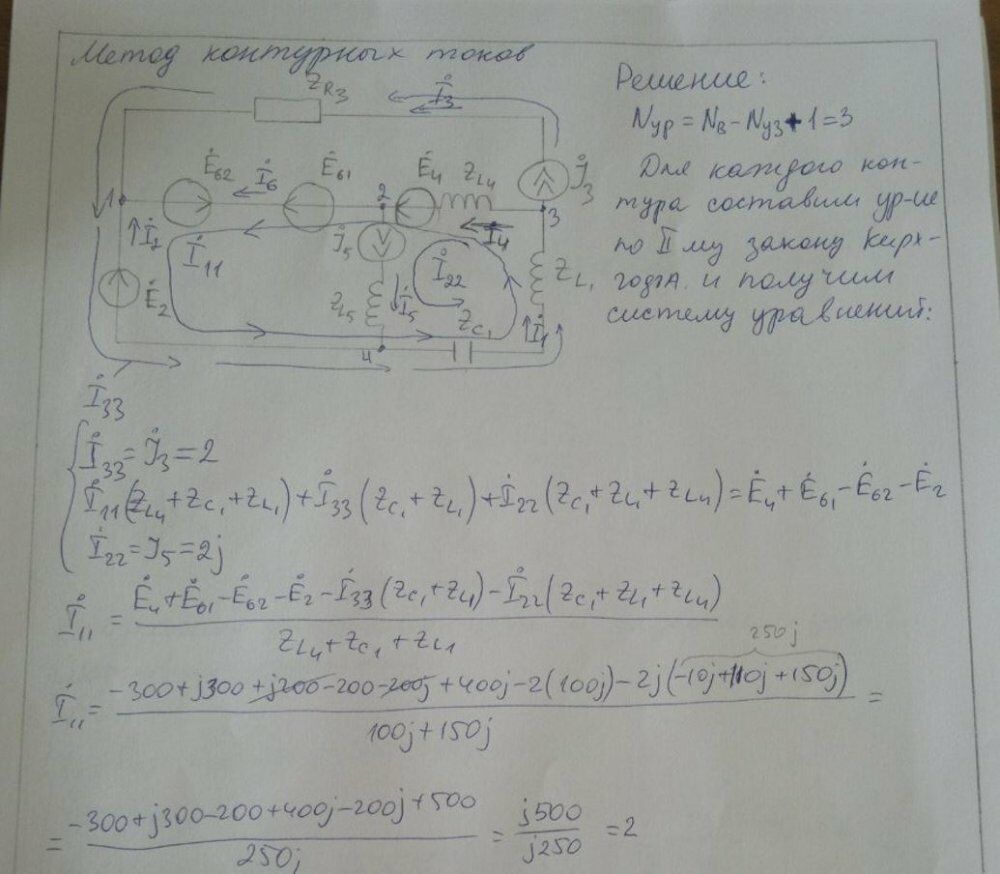 Метод контурных токов
Z_R3
İ_3
Ė_62
İ_6
Ė_61
Ė_4
Z_L4
J̇_3
1
2
3
İ_2
İ_11
J̇_5
İ_4
Ė_2
İ_22
Z_L1
Z_L5
İ_5
Z_C1
İ_1
4
İ_33
Решение:
N_ур = N_в - N_уз + 1 = 3
Для каждого кон-
тура составим ур-ие
по II му закону Кирх-
гофа и получим
систему уравнений:
İ_33 = J̇_3 = 2
İ_11(Z_L4 + Z_C1 + Z_L1) + İ_33(Z_C1 + Z_L1) + İ_22(Z_C1 + Z_L1 + Z_L4) = Ė_4 + Ė_61 - Ė_62 - Ė_2
İ_22 = J_5 = 2j
İ_11 = (Ė_4 + Ė_61 - Ė_62 - Ė_2 - İ_33(Z_C1 + Z_L1) - İ_22(Z_C1 + Z_L1 + Z_L4)) / (Z_L4 + Z_C1 + Z_L1)
250j
İ_11 = (-300 + j300 + j200 - 200 - 200j + 400j - 2(100j) - 2j(-10j + 110j + 150j)) / (100j + 150j) =
= (-300 + j300 - 200 + 400j - 200j + 500) / 250j = j500 / j250 = 2